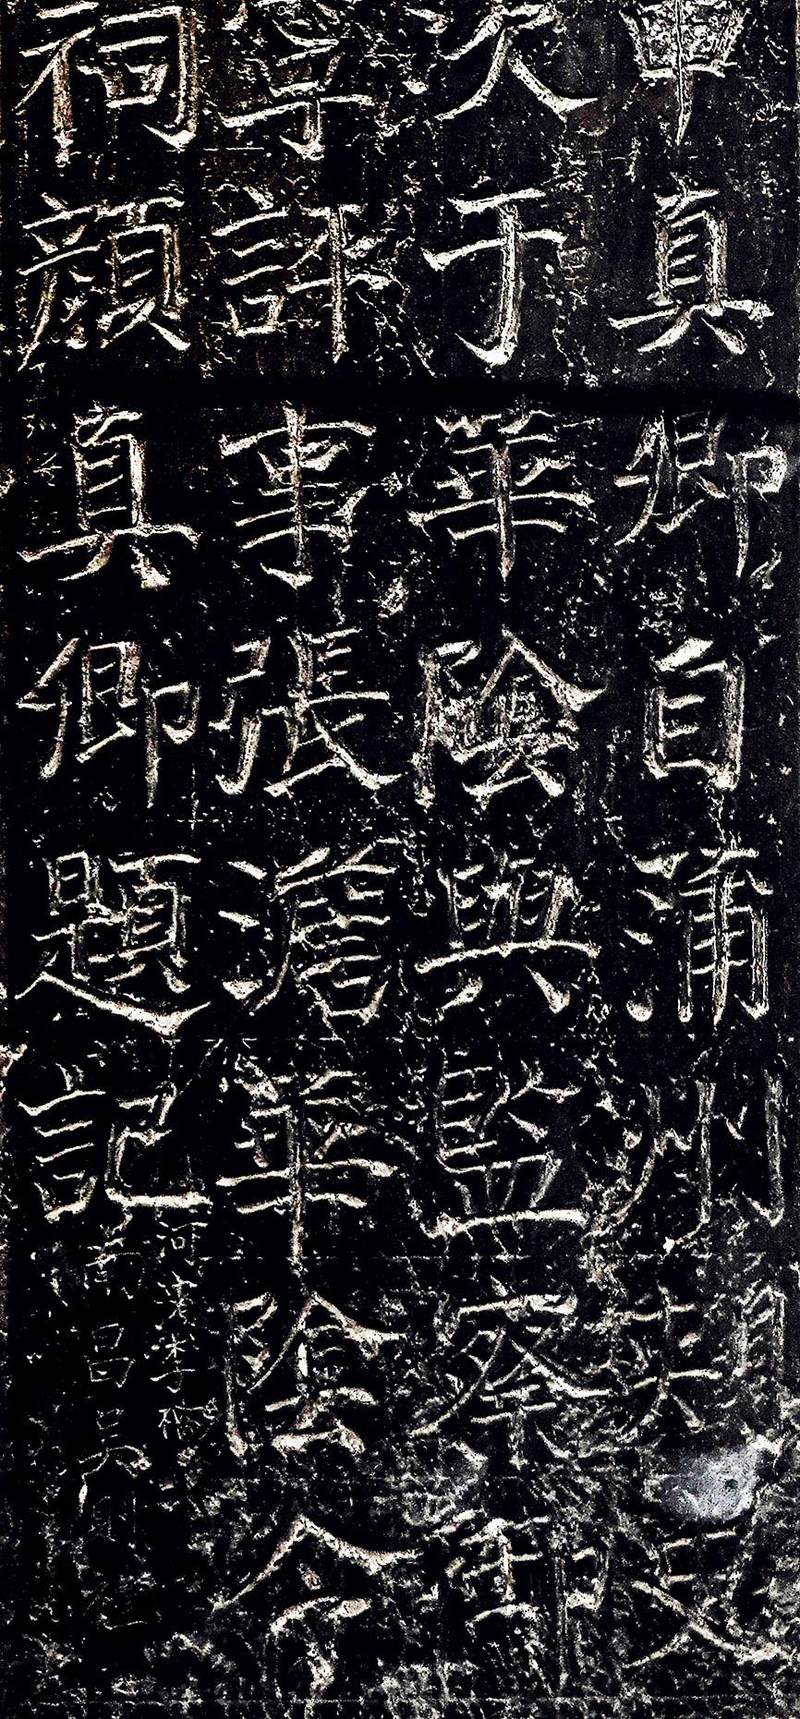 申真卿自蒲州刺史
次于華陰與監察御
寧評事張澹華陰令
祠顏真卿題記
河濱李
南昌吳